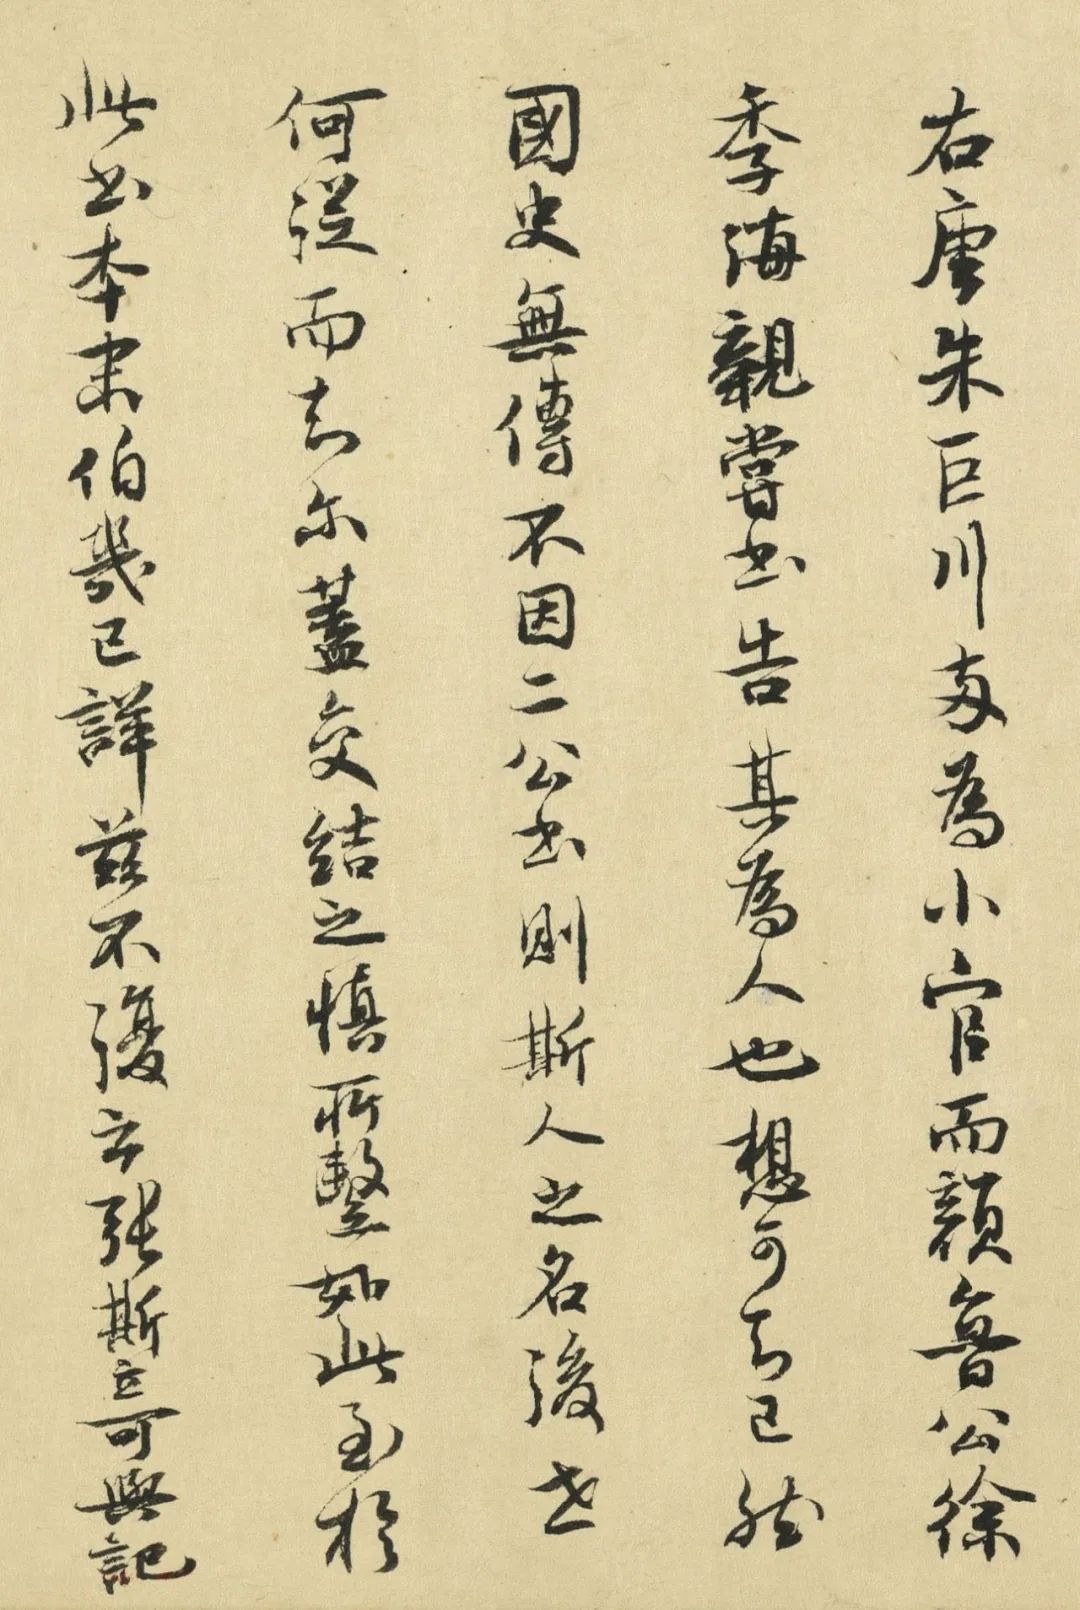 右唐朱巨川兩為小官而顏魯公徐
季海親嘗書告其為人也想可知已然
國史無傳不因二公書則斯人之名後世
何從而知尔蓋交結之慎所繫如此至於
此書本末伯幾已詳茲不復云張斯立可與記